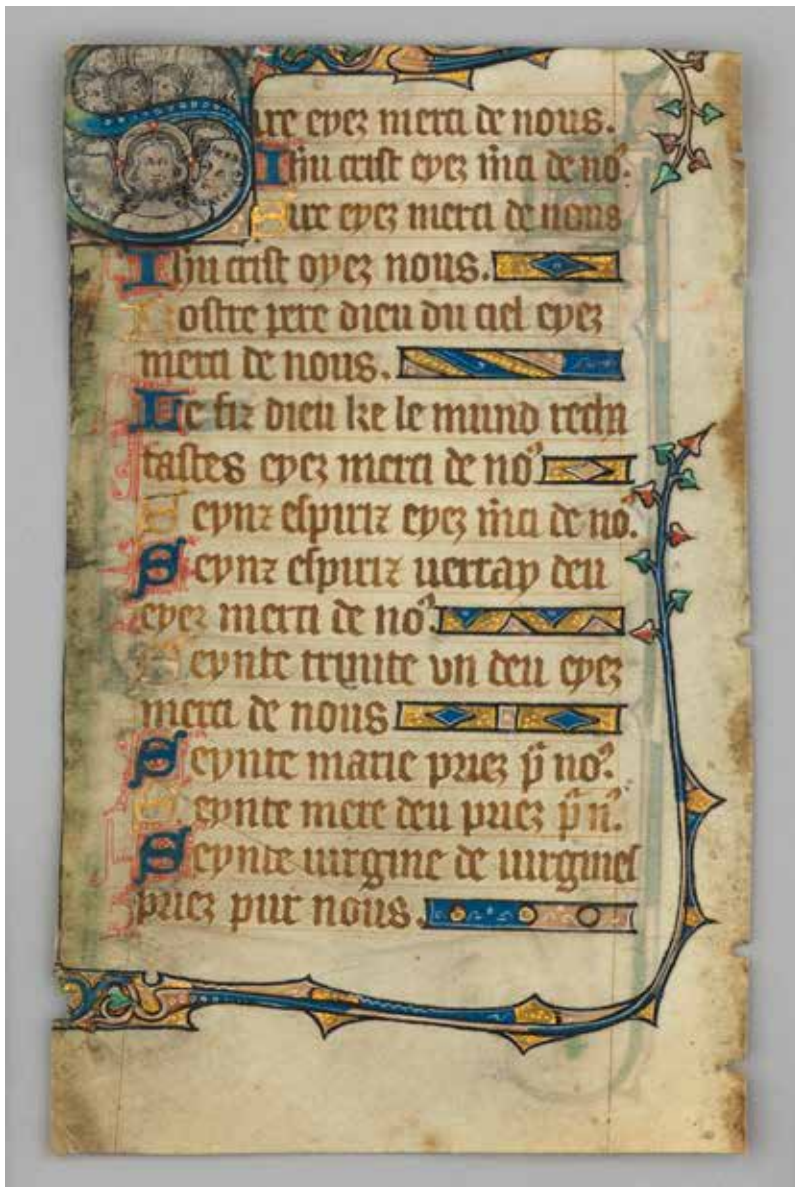 Sire eyez merci de nous.
Ihu crist eyez mci de no9.
Sire eyez merci de nous
Ihu crist oyez nous.
Nostre pere dieu du ciel eyez
merci de nous.
Le fiz dieu ke le mund rech
tastes eyez merci de no9
Seynz espiriz eyez mci de no9.
Seynz espiriz uerray deu
eyez merci de no9.
Seynte trinite vn deu eyez
merci de nous
Seynte marie priez p no9.
Seynte mere deu priez p n9.
Seynte uirgine de uirgines
priez pur nous.